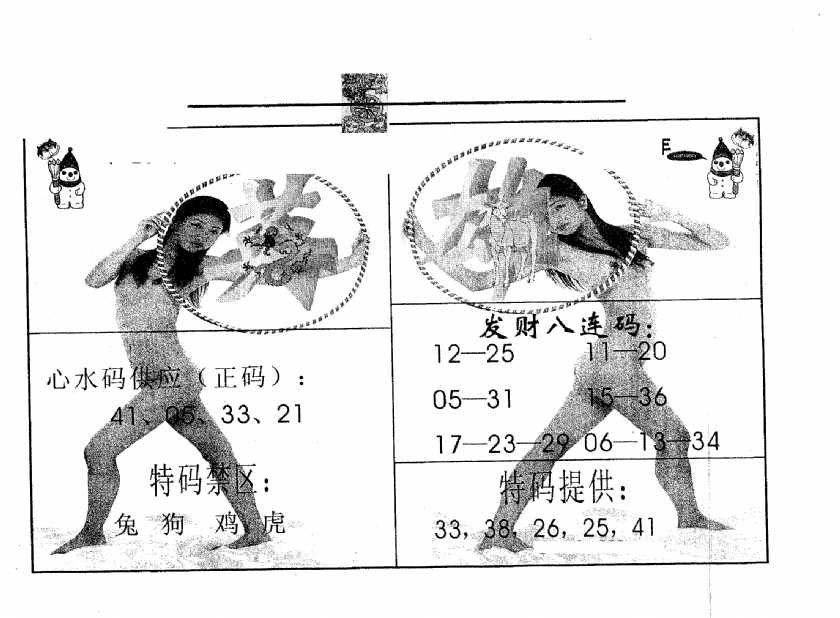 心水码供应（正码）：
41、05、33、21
特码禁区：
兔 狗 鸡 虎
E
发财八连码：
12—25 11—20
05—31 15—36
17—23—29 06—13—34
特码提供：
33，38，26，25，41